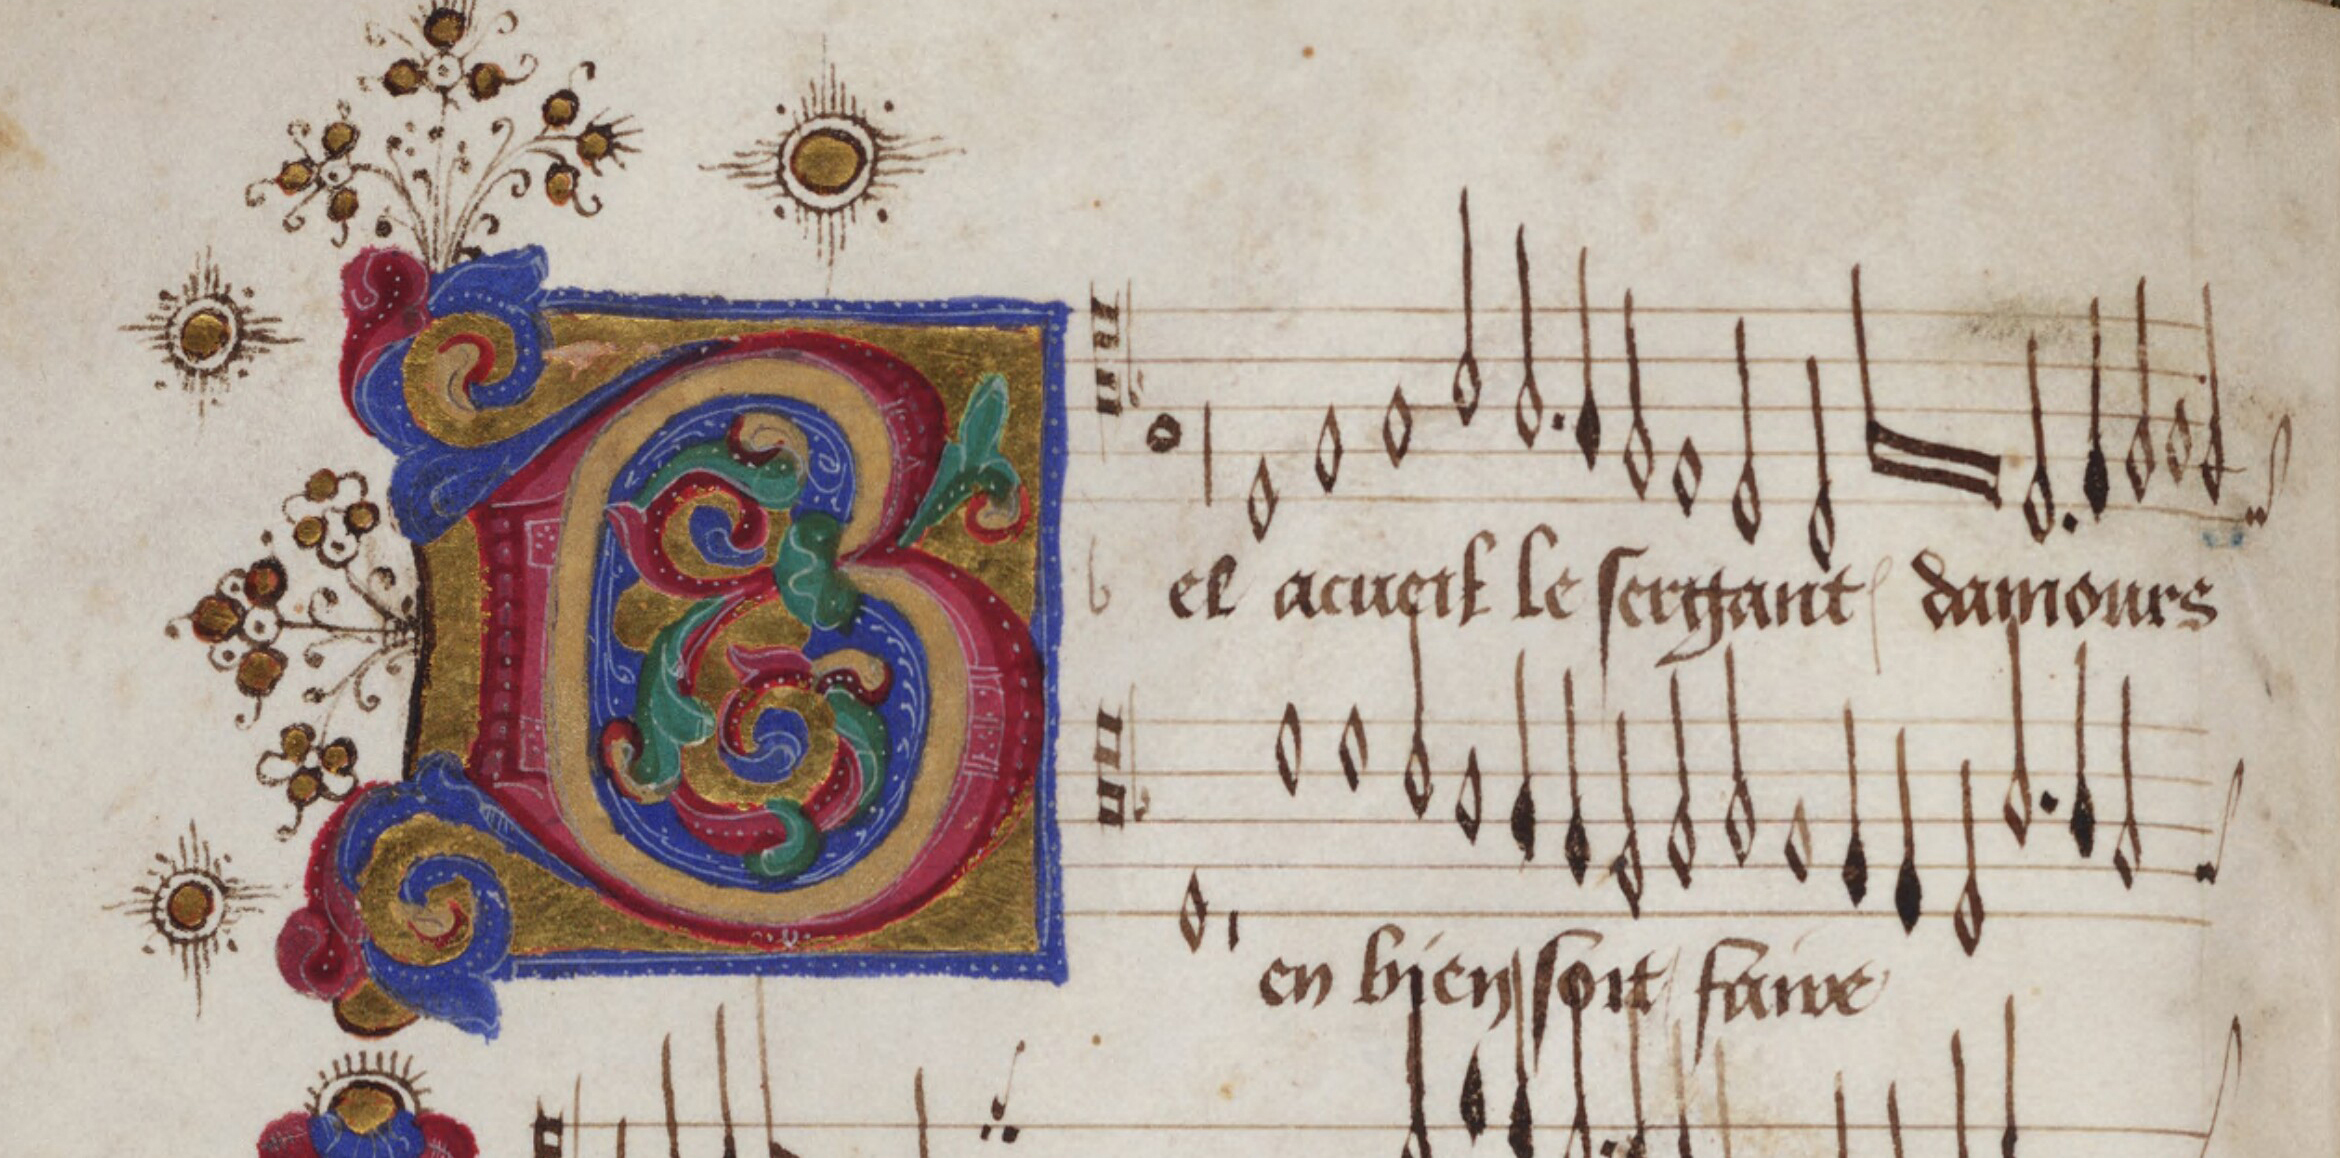 Bel acueil le sergant damours
en bien soit faire